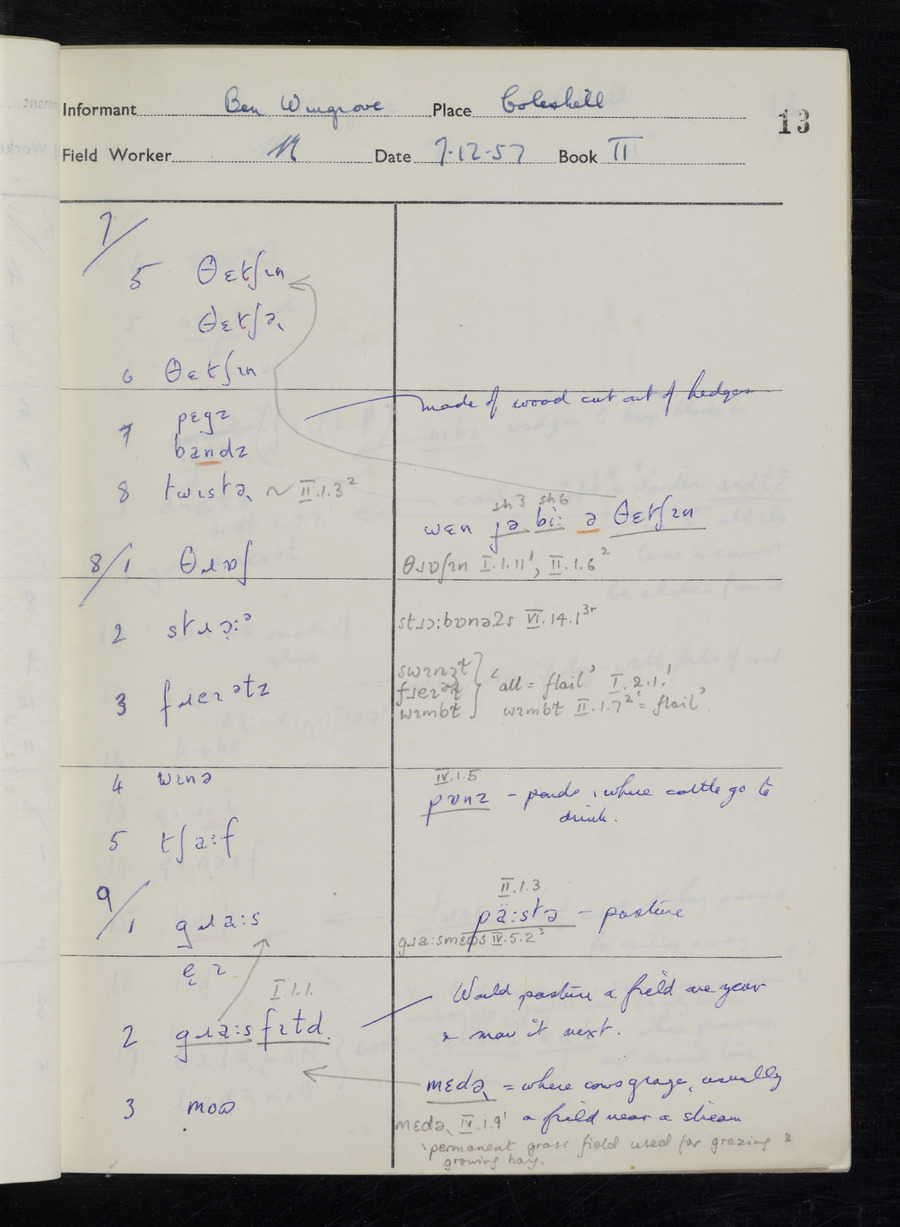 Informant Ben Wingrove Place Coleshill
13
Field Worker Date 7-12-57 Book II
7/
5 θɛtʃɪn
θɛtʃə
6 θɛtʃɪn
7 pɛgz
made of wood cut out of hedges
bandz
8 twɪstə ~ II.1.3²
sh3 sh6
wɛn jə bi: ə θɛtʃɪn
8/1 θɹɒʃ
θɹɒʃɪn I.1.11¹, II.1.6²
2 stɹɔ:ᵊ
stɹɔ:bɒnəʔs VI.14.1³ʳ
3
‘all = flail’ I.2.1.¹
II.1.7² = ‘flail’
4 wɪnə
IV.1.5
pɒnz – ponds, where cattle go to
drink.
5 tʃa:f
9/1 gɹa:s
II.1.3
pä:stə – pasture
IV.5.2³
I.1.
2 gɹa:s
Would pasture a field one year
& mow it next.
mɛdə = where cows graze, usually
a field near a stream
3 moʊ
mɛdə IV.1.9¹
‘permanent grass field used for grazing &
growing hay.